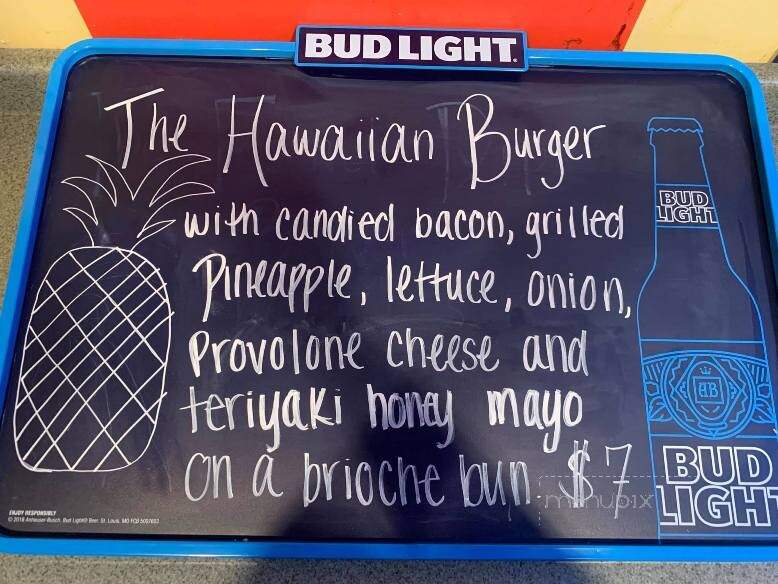 BUD LIGHT
The Hawaiian Burger
with candied bacon, grilled
Pineapple, lettuce, onion,
Provolone cheese and
teriyaki honey mayo
on a brioche bun $7
BUD
LIGHT
AB
BUD
LIGHT
menupix
ENJOY RESPONSIBLY
© 2018 Anheuser-Busch, Bud Light® Beer, St. Louis, MO